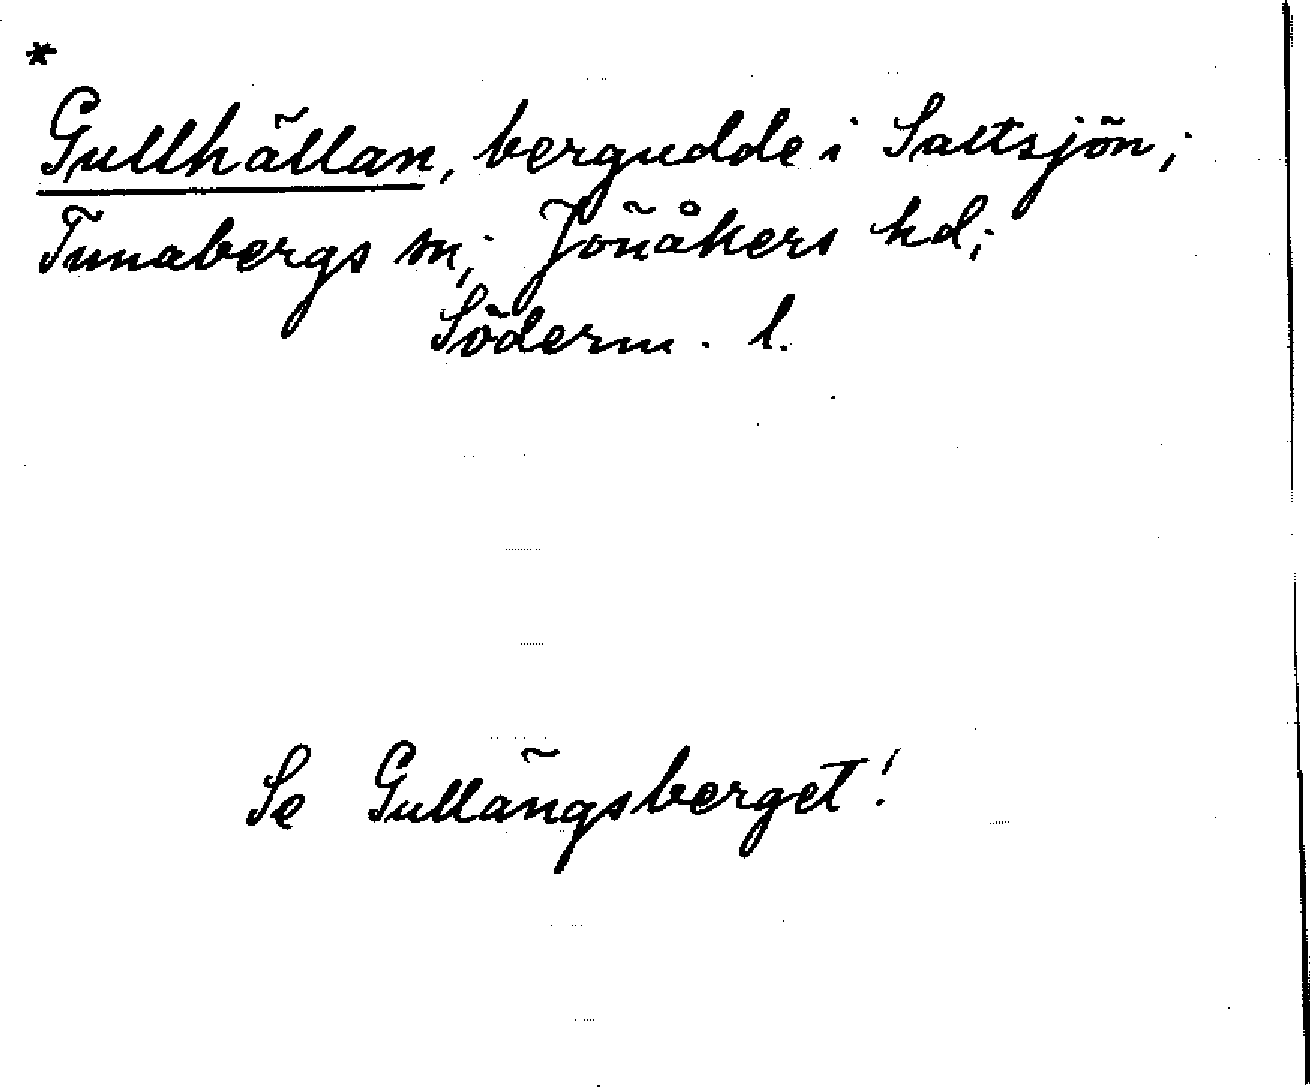 *
Gullhällan, bergudde i Saltsjön;
Tunabergs sn; Jönåkers hd;
Söderm. l.
Se Gullängsberget!